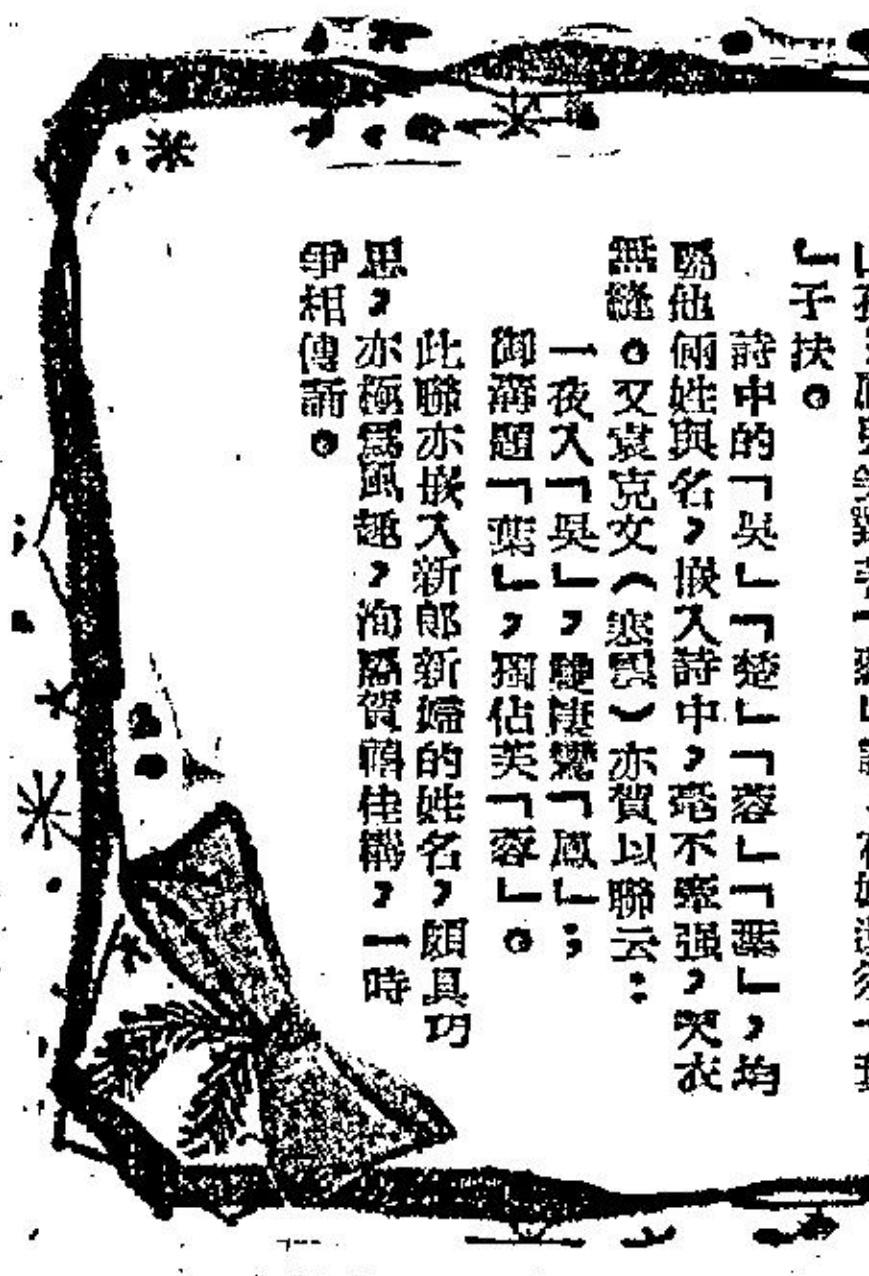 」子扶。
詩中的「吳」「楚」「蓉」「葉」,均
屬他倆姓與名,嵌入詩中,毫不牽强,天衣
無縫。又袁克文(寒雲)亦賀以聯云:
一夜入「吳」,雙棲鸞「鳳」;
御溝題「葉」,獨佔芙「蓉」。
此聯亦嵌入新郎新婦的姓名,頗具巧
思,亦極爲風趣,洵屬賀囍佳構,一時
爭相傳誦。